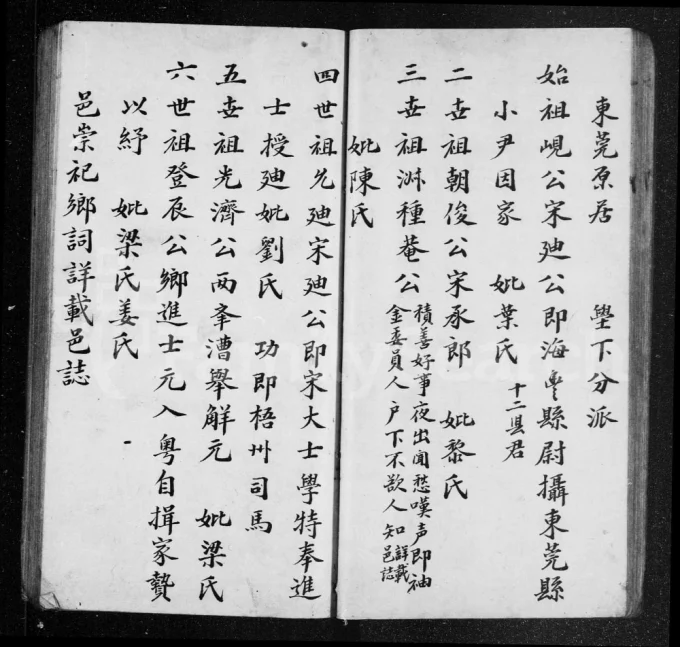 東莞原居 壆下分派
始祖峴公宋廸公即海豊縣尉攝東莞縣
小尹因家 妣葉氏 十二县君
二世祖朝俊公宋承郎 妣黎氏
三世祖淋種菴公 積善好事夜出聞愁嘆声即袖
金委員人户下不欲人知 詳載
邑誌
妣陳氏
四世祖允廸宋廸公即宋大士學特奉進
士授廸妣劉氏 功即梧州司馬
五世祖光濟公两峯漕舉解元 妣梁氏
六世祖登辰公鄉進士元入粤自揖家贄
以紓 妣梁氏姜氏
邑崇祀鄉詞詳載邑誌